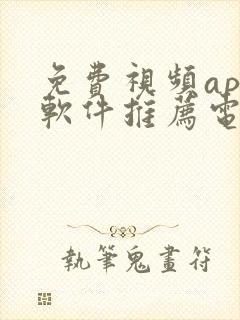 免費視頻ap
軟件推薦電
執筆鬼畫符